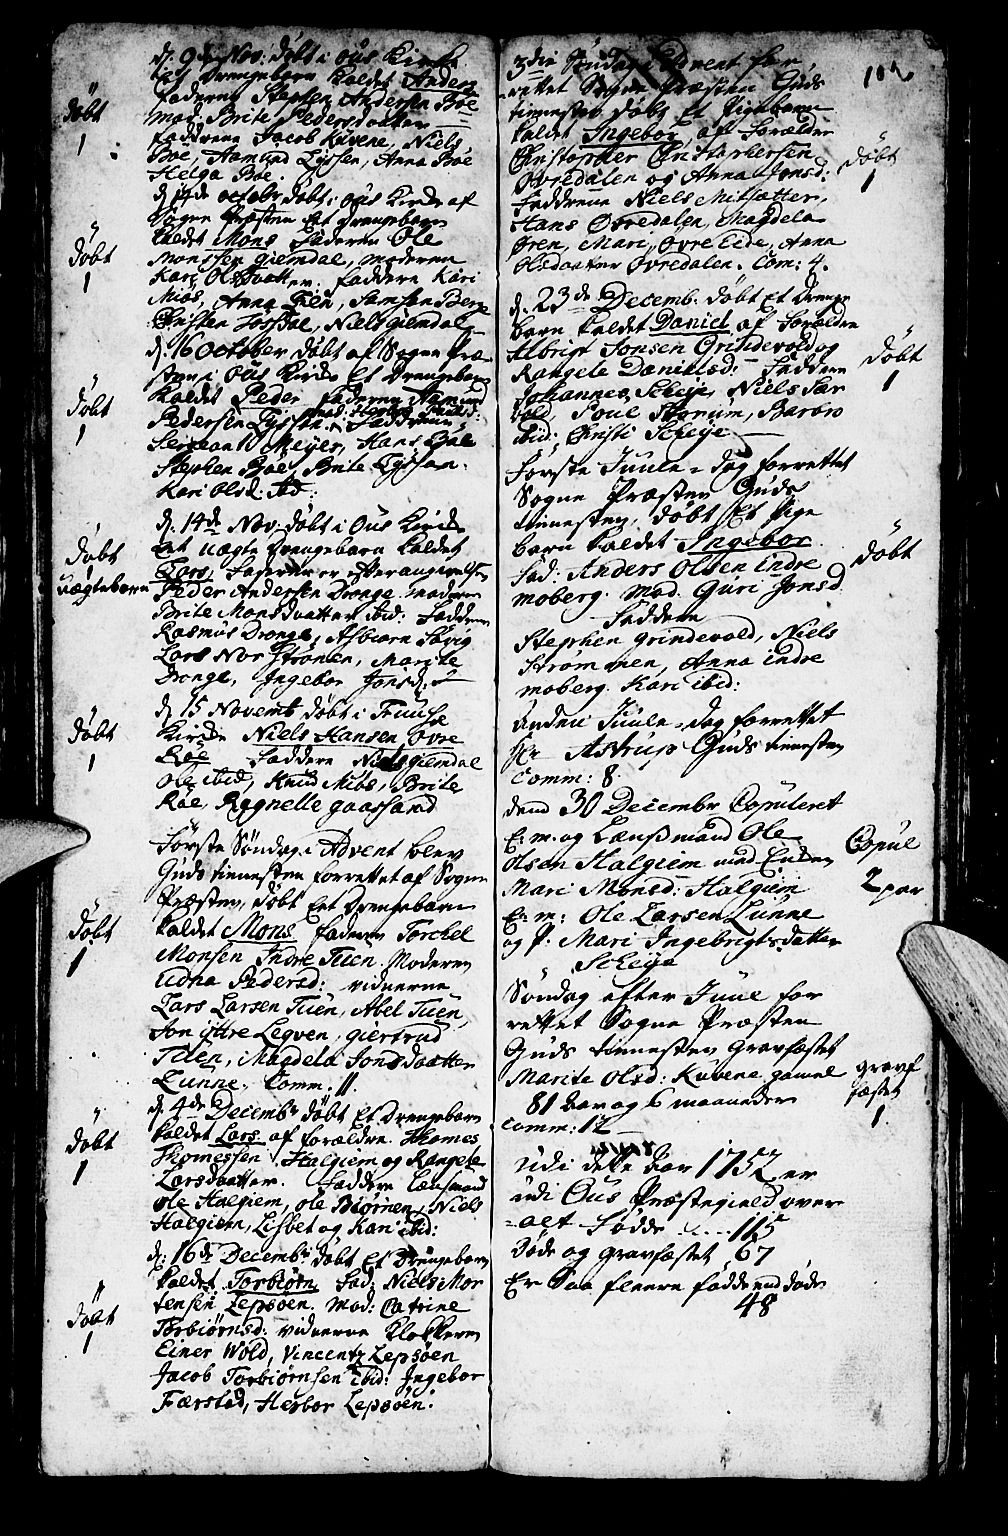 d: 9de Nov: døbt i Ous Kirke
Et Drengebarn kaldet Anders
faderen Stephen Andersen Bøe
mod. Brite Pedersdaatter
faddrene Jacob Kuvene, Niels
Bøe, Aamund Lyssen, Anna Bøe
Helga Bøe.
døbt
1
d. 14de octobr døbt i Ous Kirke af
Sogne Præsten Et Drengebarn
kaldet Mons faderen Ole
Monssen giemdal, moderen
Kari Olsdaatter: faddere Kari
Miøs, Anna Tien, Samson Berge
Christen Jossdal, Niels giemdal
døbt
1
d. 16 October døbt af Sogne Præ
sten i Ous Kirke Et Drengebarn
kaldet Peder faderen Aamund
Pedersen Lyssen, mod: Herborg Povelsd:
Faddrene
Sergeant Meyer, Hans Bøe
Stephen Bøe, Brite Lyssen.
Kari Olsd: ibid:
døbt
1
d. 14de Nov. døbt i Ous Kirke
Et uægte Drengebarn kaldet
Lars, faderen er efter angivelse
Peder Andersen Drange. moderen
Brite Monsdaatter ibid: Faddere
Rasmus Drange, Asbiørn Søvig
Lars Nordstrønen, Marite
Drange, Ingebor Jonsd:
døbt
uægtebarn
d 15 Novemb døbt i Fuuse
Kirke Niels Hansen Øvre
Røe Faddere Niels giemdal
Ole ibid, Knud Miøs, Brite
Røe, Rognelle gaassand
døbt
1
Første Søndag i Advent blev
Guds tienesten forrettet af Sogne
Præsten, døbt Et Drengebarn
kaldet Mons faderen Torchel
Monsen Indre Tuen. Moderen
Udna Pedersd: vidnerne
Lars Larsen Tuen, Abel Tuen,
Jon ÿttre Legven, giertrud
Tuen, Magdela Jonsdaatter
Lunne. Comm. 11.
døbt
1
d, 4de Decembr døbt Et Drengebarn
kaldet Lars af forældre Thomes
Thomessen Halgiem og Rangele
Larsdaatter. Faddere Lænsmand
Ole Halgiem, Ole Biørnen, Niels
Halgiem, Lisbet og Kari ibid:
døbt
1
d: 16de Decembr døbt Et Drengebarn
kaldet Torbiørn Fad: Niels Mor
tensen Lepsøen. Mod: Catrine
Torbiørnsd: vidnerne Klokkeren
Einer Wold, Vincentz Lepsøen
Jacob Torbiørnsen ibid: Ingebor
Færstad, Herbor Lepsøen.
døbt
1
102
3die Søndag i Advent for
rettet Sogne Præsten Guds
tienesten døbt Et Pigebarn
kaldet Ingebor af Forældre
Christopher Christophersen
Øvredalen og Anna Jonsd:
Faddrene Niels Mitsætter,
Hans Øvredalen, Magdela
Øren, Mari Øvre Eide, Anna
Olsdaatter Øvredalen. Com: 4.
døbt
1
d. 23de Decemb. døbt Et Drenge
barn kaldet Daniel af Forældre
Elbrigt Jonsen Grindevold og
Rangele Danielsd: Faddere
Johannes Scheije, Niels Sær
vold, Poul Skorum, Barbro
ibid: Christi Scheije
døbt
1
Første Juule-dag forrettet
Sogne Præsten Guds
tienesten, døbt Et Pige
barn kaldet Ingebor
Fad: Anders Olsen indre
moberg. Mod. Guri Jonsd
Faddere
Stephen Grindevold, Niels
Strømmen, Anna indre
moberg. Kari ibid:
døbt
1
Anden Juule-dag forrettet
Hr Astrup Guds tienesten
Comm: 8.
dend 30 Decembr Copuleret
E: m. og Lænssmand Ole
Olsen Halgiem med Enken
Mari Monsd: Halgiem
E: m: Ole Larsen Lunne
og P. Mari Ingebrigtsdatter
Scheije
Copul
2 par
Søndag efter Juul for
rettet Sogne Præsten
Guds tienesten Gravfæstet
Marite Olsd: Kuvene gamel
81 Aar og 6 maaneder
Comm: 12
gravf
fæstet
1
udi dette Aar 1752 er
udi Ous Præstegield over
=alt Fødde .... 115
Døde og gravfæstet 67
Er saa fleere fødde end døde
48